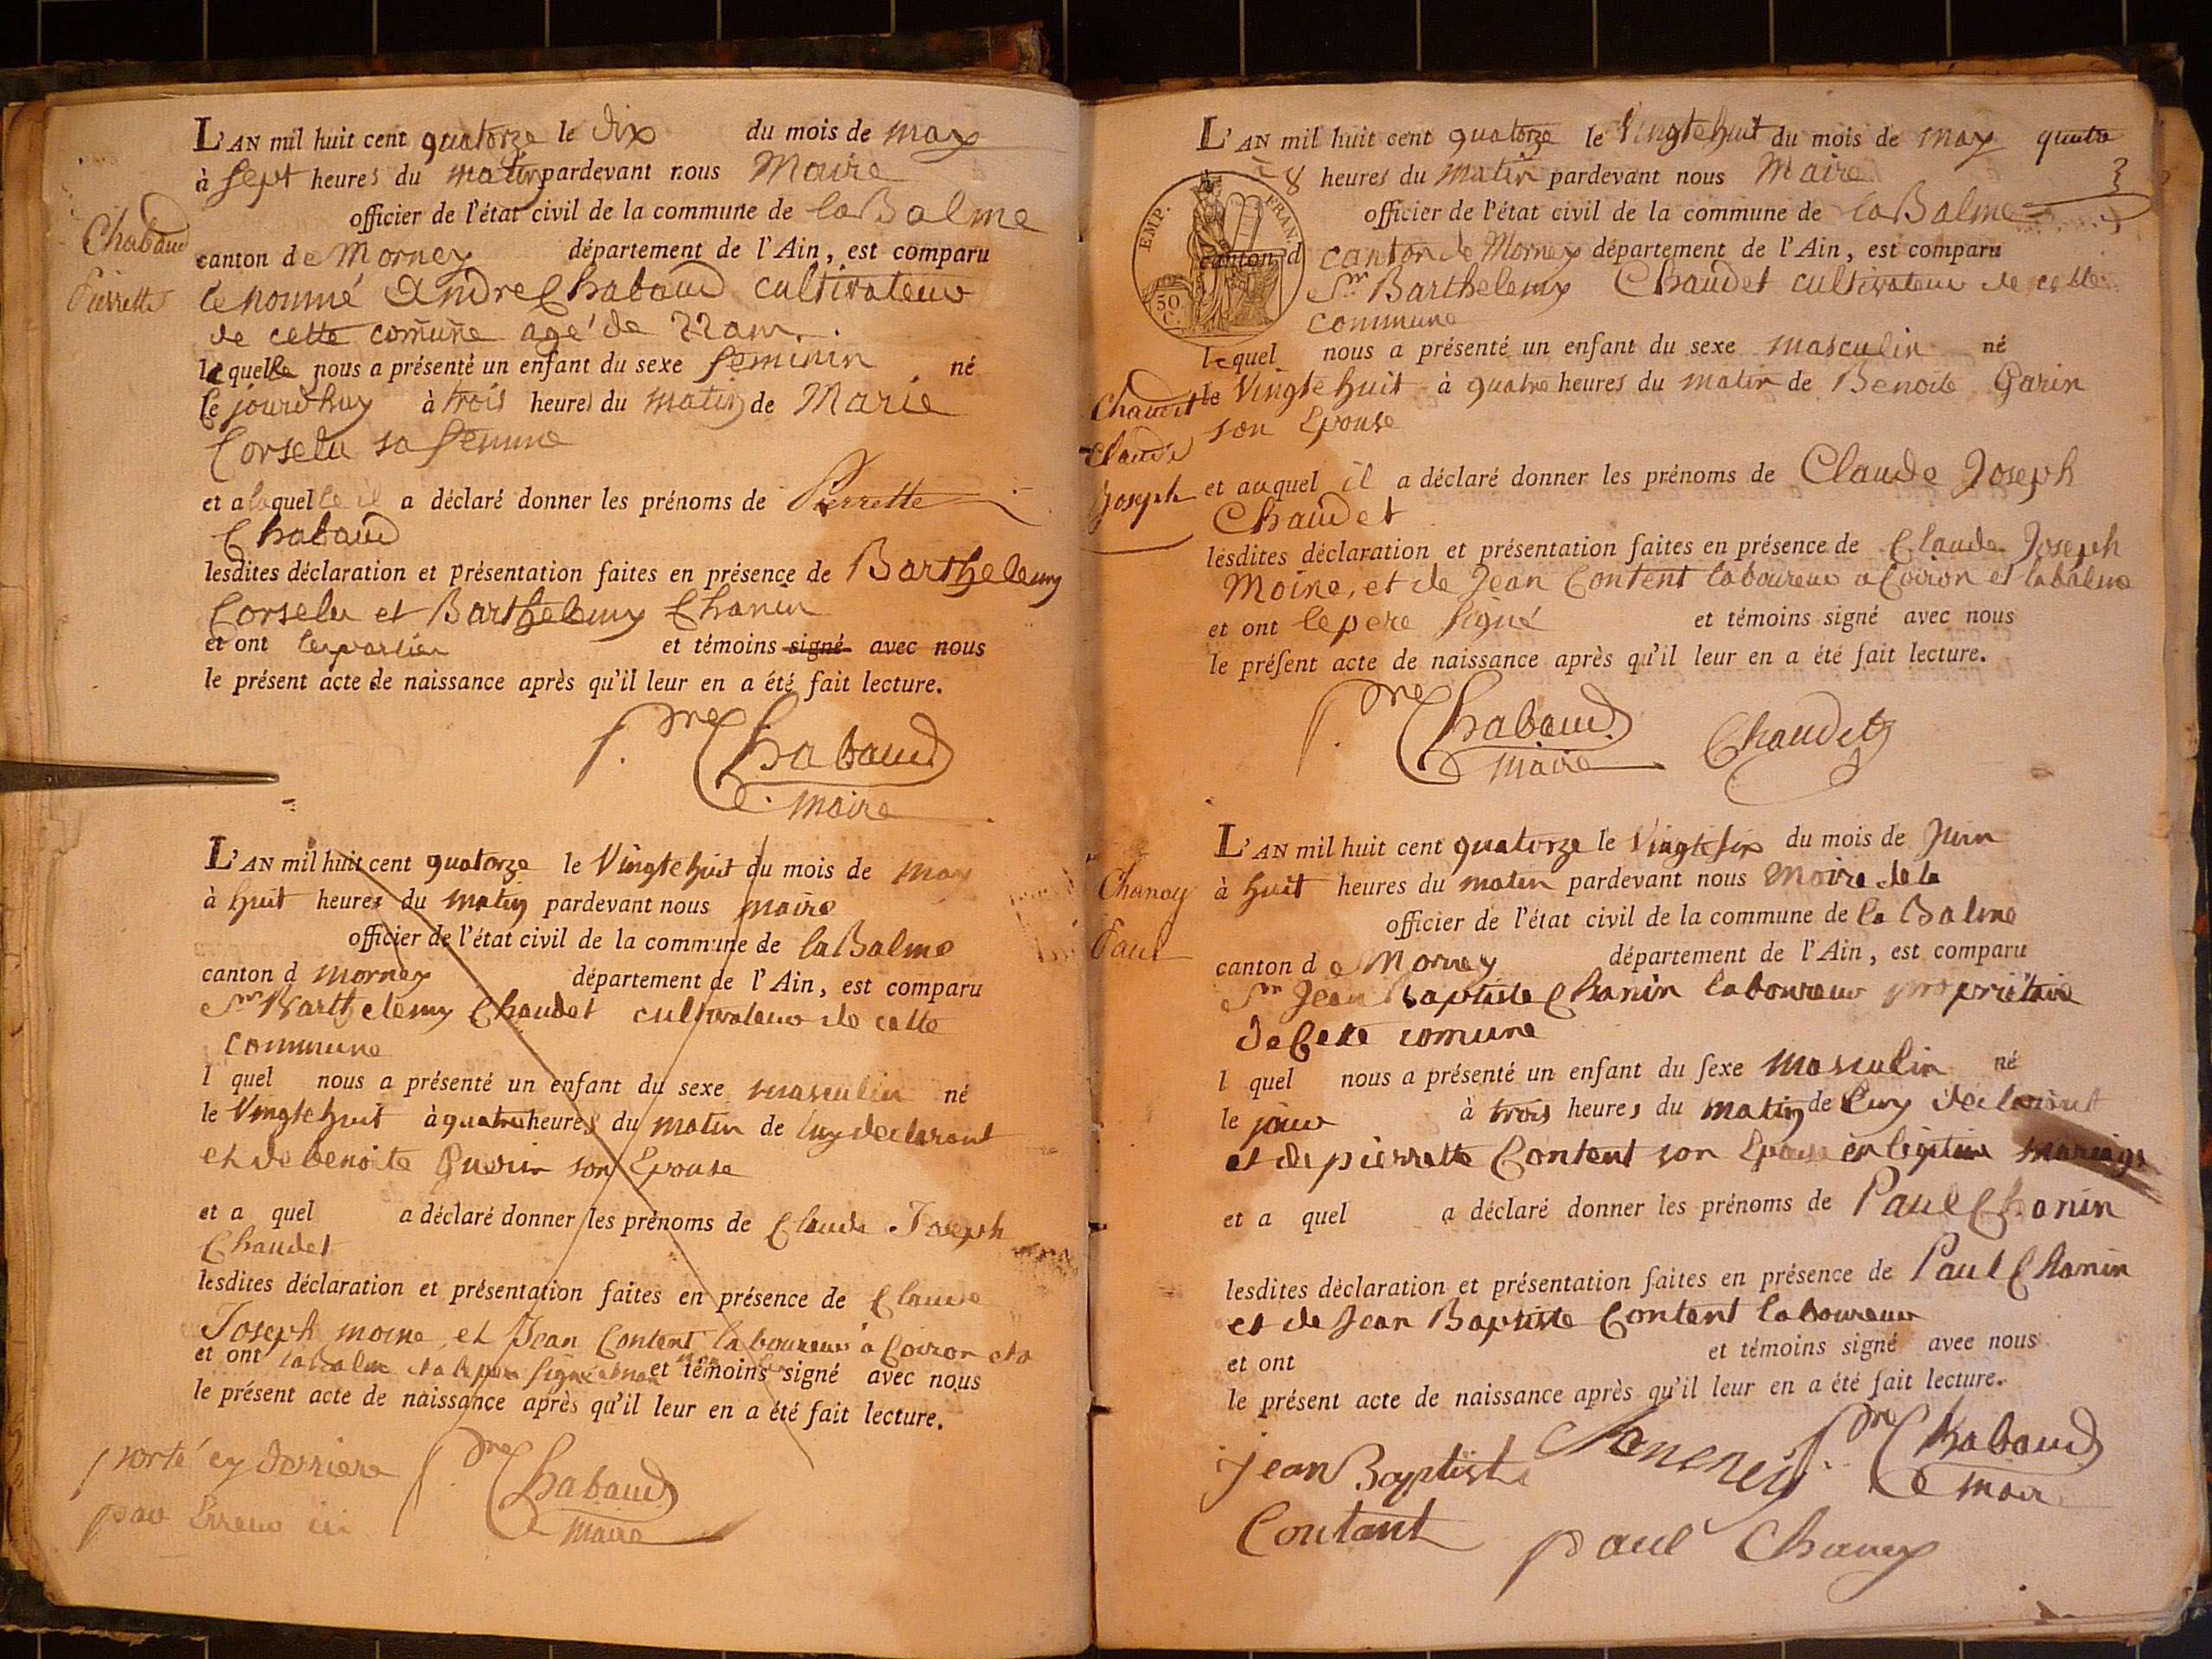 L'AN mil huit cent quatorze le dix du mois de may
à sept heures du matin pardevant nous Maire
officier de l'état civil de la commune de la Balme
Chabaud
canton de Mornay département de l'Ain, est comparu
Pierrette
le nommé André Chabaud cultivateur
de cette comune agé de 22 ans.
laquelle nous a présenté un enfant du sexe feminin né
le jourdhuy à trois heures du matin de Marie
Corselu sa femme
et a laquelle il a déclaré donner les prénoms de Pierrette
Chabaud
lesdites déclaration et présentation faites en présence de Barthelemy
Corselu et Barthelemy Chanin
et ont et témoins signé avec nous
le présent acte de naissance après qu'il leur en a été fait lecture.
Chabaud
maire
L'AN mil huit cent quatorze le Vingtehuit du mois de may
à huit heures du matin pardevant nous maire
officier de l'état civil de la commune de la Balme
canton d mornay département de l'Ain, est comparu
Sr Barthelemy Chaudet cultivateur de cette
commune
l quel nous a présenté un enfant du sexe masculin né
le Vingtehuit à quatre heures du matin de luy declarant
et de benoite Guerin son Epouse
et a quel a déclaré donner les prénoms de Claude Joseph
Chaudet
lesdites déclaration et présentation faites en présence de Claude
Joseph moine et Jean Content laboureur a Coiron et a
et ont labalme et témoins signé avec nous
le présent acte de naissance après qu'il leur en a été fait lecture.
porté cy derriere
par Erreur ici
Chabaud
maire
L'AN mil huit cent quatorze le Vingtehuit du mois de may quatre
à 8 heures du matin pardevant nous Maire
officier de l'état civil de la commune de la Balme
EMP. FRAN.
50 C.
canton d canton de Mornay département de l'Ain, est comparu
Sr Barthelemy Chaudet cultivateur de cette
commune
lequel nous a présenté un enfant du sexe masculin né
Chaudet
le Vingtehuit à quatre heures du matin de Benoite Garin
son Epouse
Claude
Joseph
et auquel il a déclaré donner les prénoms de Claude Joseph
Chaudet
lesdites déclaration et présentation faites en présence de Claude Joseph
Moine, et de Jean Content laboureur a Coiron et labalme
et ont le pere signé et témoins signé avec nous
le présent acte de naissance après qu'il leur en a été fait lecture.
Chabaud Chaudet
maire
L'AN mil huit cent quatorze le Vingtesix du mois de Juin
Chanay
à huit heures du matin pardevant nous Maire de la
officier de l'état civil de la commune de la Balme
Paul
canton de Mornay département de l'Ain, est comparu
Sr Jean Baptiste Chanin laboureur propriétaire
de Cete comune
l quel nous a présenté un enfant du sexe masculin né
le jour à trois heures du matin de luy déclarant
et de pierrette Content son Epouse en légitime mariage
et a quel a déclaré donner les prénoms de Paul Chanin
lesdites déclaration et présentation faites en présence de Paul Chanin
et de Jean Baptiste Content laboureur
et ont et témoins signé avec nous
le présent acte de naissance après qu'il leur en a été fait lecture.
Jean Baptiste Chabaud
maire
Contant
paul Chanay